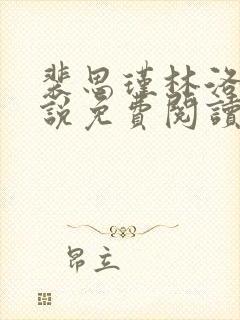 裴思瑾林洛
說免費閱讀
昂立